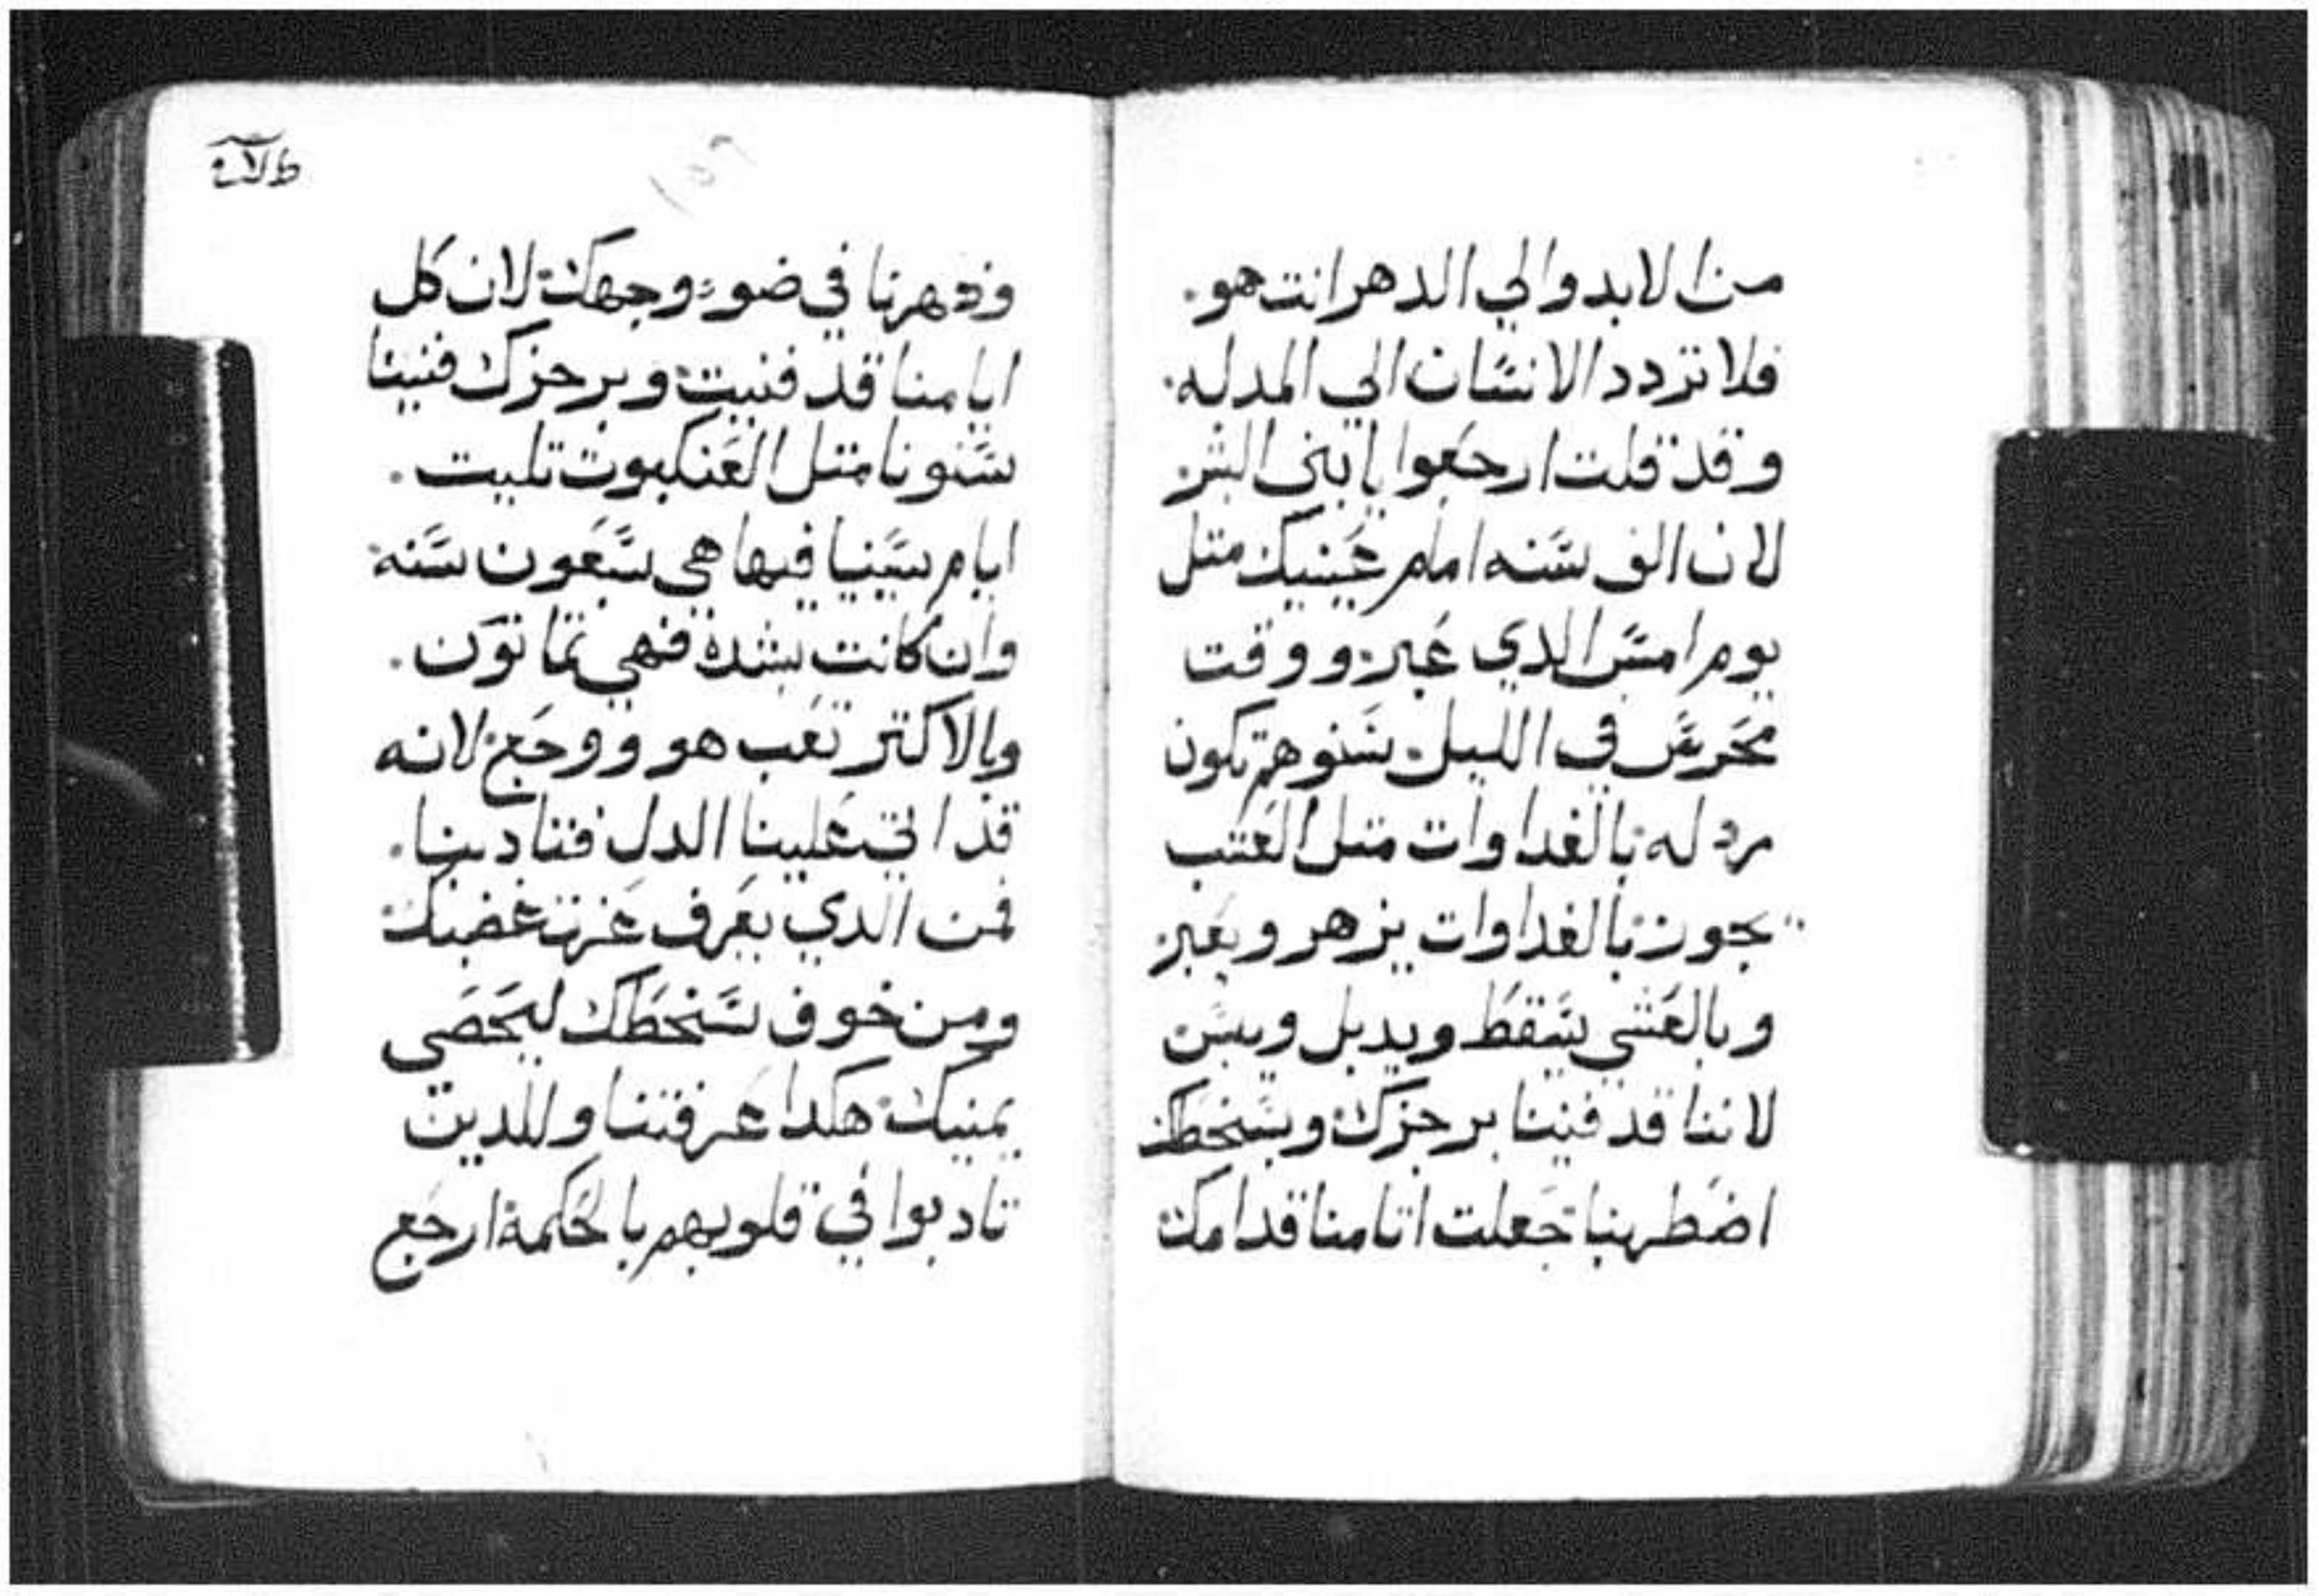 من الابد والي الدهر انت هو.
فلا تردد الانسان الي المدله.
وقد قلت ارجعوا يا بني البشر
لان الف سنه امام عينيك متل
يوم امس الدي عبر. ووقت
محرس في الليل. سنوهم تكون
مردله بالغداوات متل العشب
يجوز بالغداوات يزهر ويعبر
وبالعشي يسقط ويدبل ويبس
لاننا قد فنينا برجزك وبسخطك
اضطربنا جعلت اتامنا قدامك
ودهرنا في ضوء وجهك لان كل
ايامنا قد فنيت وبرجزك فنينا
سنونا متل العنكبوت تلبت.
ايام سنينا فيها هي سبعون سنه
وان كانت بشدة فهي تمانون.
وبالاكتر تعب هو ووجع لانه
قد اتي علينا الدل فتادبنا.
فمن الدي يعرف عزت غضبك
ومن خوف سخطك ليحصي
يمنيك هكدا عرفتنا وللدين
تادبوا في قلوبهم بالحكمة ارجع